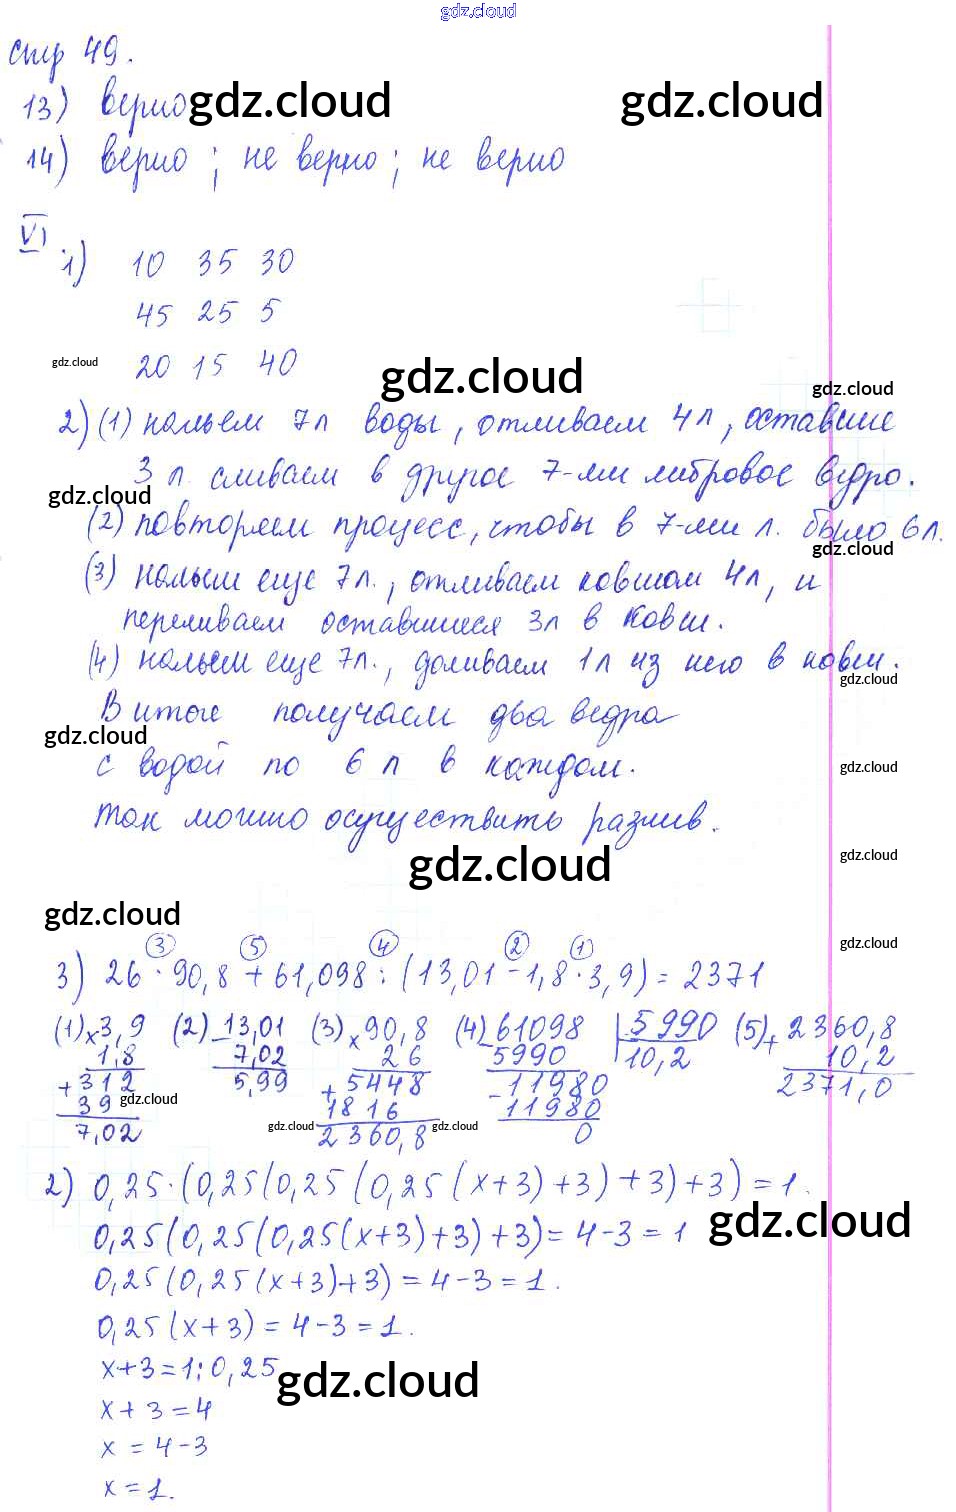 gdz.cloud
стр 49.
13) верно gdz.cloud gdz.cloud
14) верно ; не верно ; не верно
VI
1) 10 35 30
45 25 5
gdz.cloud 20 15 40 gdz.cloud gdz.cloud
2) (1) нальем 7л воды, отливаем 4л, оставшие
3 л. сливаем в другое 7-ми литровое ведро.
gdz.cloud
(2) повторяем процесс, чтобы в 7-ми л. было 6л.
gdz.cloud
(3) нальем еще 7л., отливаем ковшом 4л, и
переливаем оставшиеся 3л в ковш.
(4) нальем еще 7л., доливаем 1л из него в ковш.
gdz.cloud
В итоге получаем два ведра
gdz.cloud
с водой по 6 л в каждом. gdz.cloud
Так можно осуществить разлив.
gdz.cloud gdz.cloud
gdz.cloud
(3) (5) (4) (2) (1) gdz.cloud
3) 26 · 90,8 + 61,098 : (13,01 - 1,8 · 3,9) = 2371
(1) × 3,9 (2) - 13,01 (3) × 90,8 (4) - 61098 | 5990 (5) + 2360,8
1,8 7,02 26 5990 10,2 10,2
+ 312 5,99 + 5448 - 11980 2371,0
39 gdz.cloud 1816 11980
7,02 gdz.cloud 2360,8 gdz.cloud 0
2) 0,25 · (0,25(0,25(0,25(x+3)+3)+3)+3) = 1.
0,25(0,25(0,25(x+3)+3)+3) = 4-3 = 1 gdz.cloud
0,25(0,25(x+3)+3) = 4-3 = 1.
0,25(x+3) = 4-3 = 1.
x+3 = 1:0,25 gdz.cloud
x + 3 = 4
x = 4-3
x = 1.